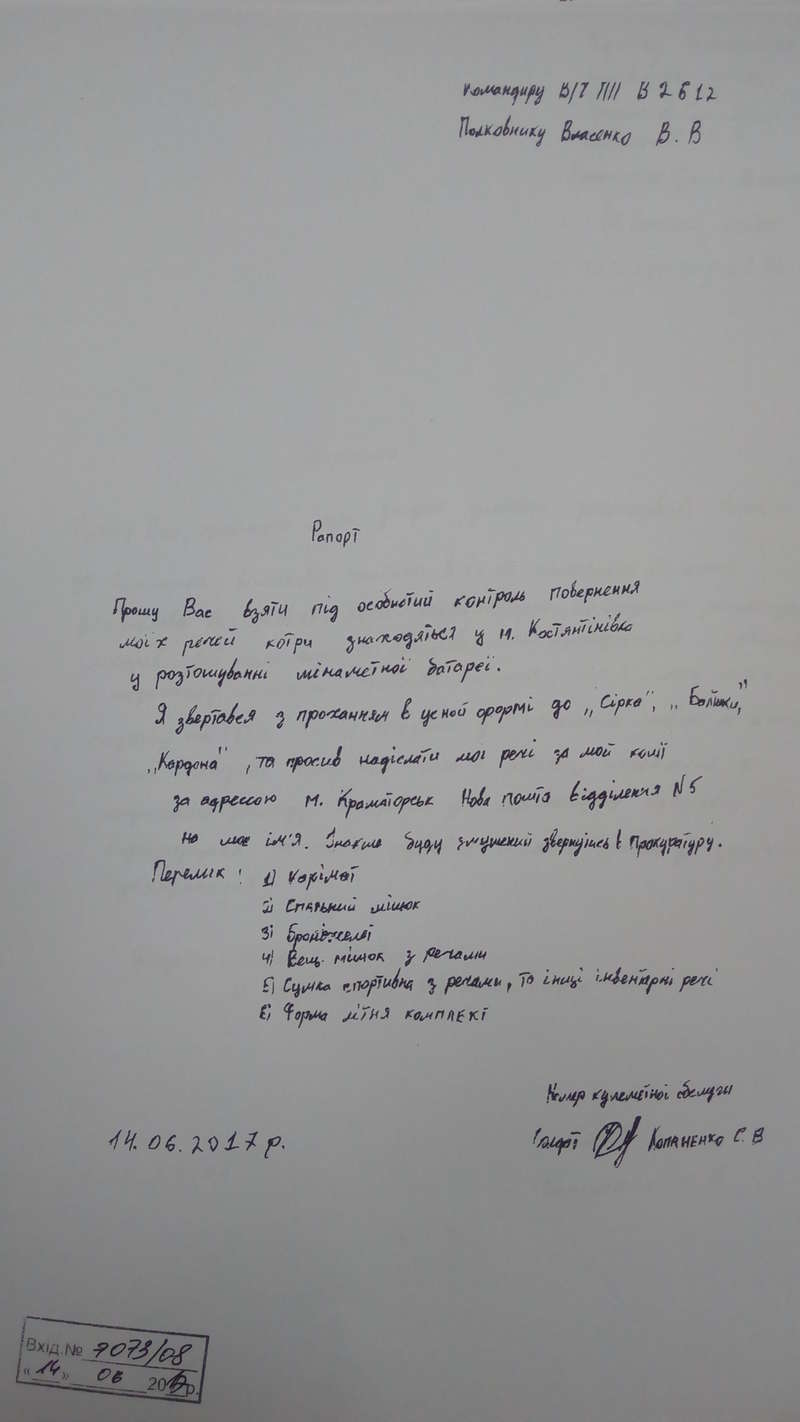 Командиру В/Ч ПП В 2612
Полковнику Власенко В. В
Рапорт
Прошу Вас взяти під особистий контроль повернення
моїх речей котри знаходяться у м. Костянтінівка
у розтошуванні мінаметної батареї.
Я звертався з проханням в усной формі до ,,Сірка", ,,Балтики,"
,,Кордона", та просив надіслати мої речі за мой кошт
за адрессою м. Краматорськ Нова пошта відділення N5
на моє ім'я. Інакше буду змушений звернутись в Прокуратуру.
Перелик : 1) Карімат
2) Спальний мішок
3) Броніжелет
4) Вещ. мішок з речами
5) Сумка спортивна з речами, та інші інвентарні речі
6) Форма літня комплект
Номер кулеметної обслуги
14.06.2017 р. Солдат Копаненко С. В
Вхід.№ 7073/08
«14» 06 20 р.